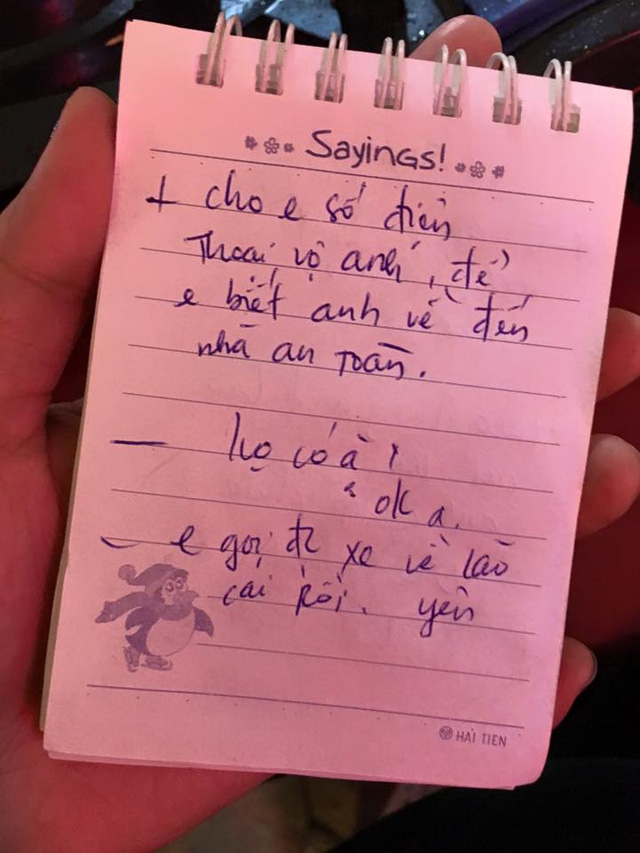 Sayings!
+ cho e số điện
Thoại vộ anh, để
e biết anh về đến
nhà an Toàn.
— họ có à?
ok ạ.
- e gọi đc xe về lào
cai Rồi. yên
HẢI TIẾN